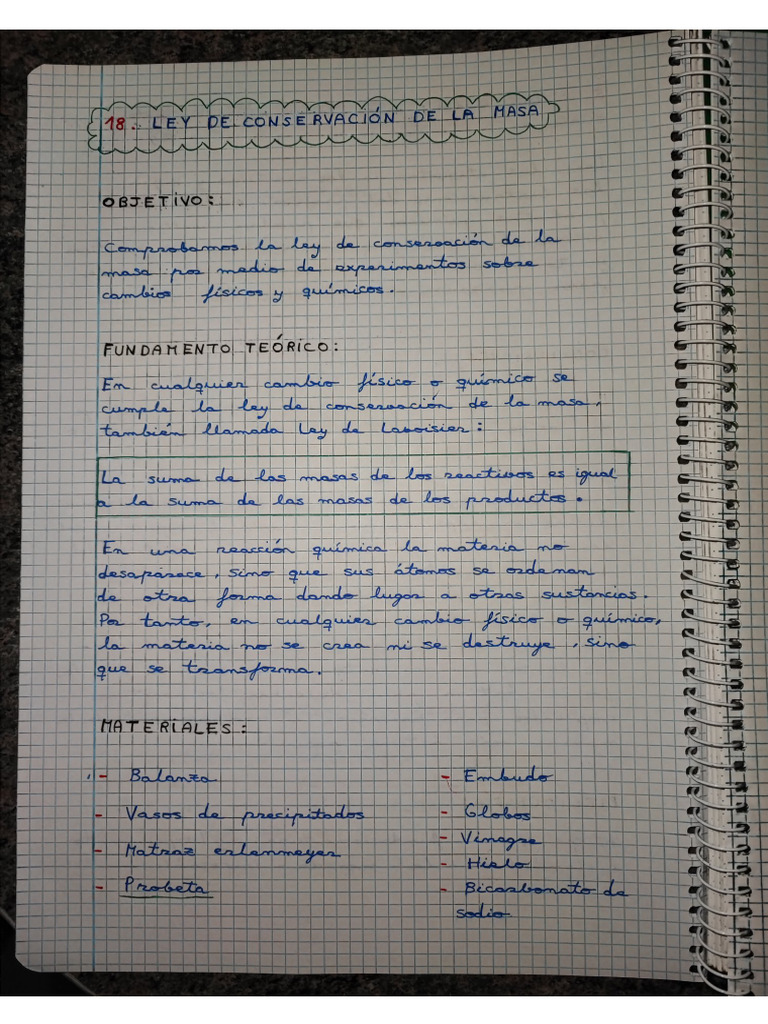 18. LEY DE CONSERVACIÓN DE LA MASA
OBJETIVO:
Comprobamos la ley de conservación de la
masa por medio de experimentos sobre
cambios físicos y químicos.
FUNDAMENTO TEÓRICO:
En cualquier cambio físico o químico se
cumple la ley de conservación de la masa,
también llamada Ley de Lavoisier:
La suma de las masas de los reactivos es igual
a la suma de las masas de los productos.
En una reacción química la materia no
desaparece, sino que sus átomos se ordenan
de otra forma dando lugar a otras sustancias.
Por tanto, en cualquier cambio físico o químico,
la materia no se crea ni se destruye, sino
que se transforma.
MATERIALES:
- Balanza
- Vasos de precipitados
- Matraz erlenmeyer
- Probeta
- Embudo
- Globos
- Vinagre
- Hielo
- Bicarbonato de
sodio